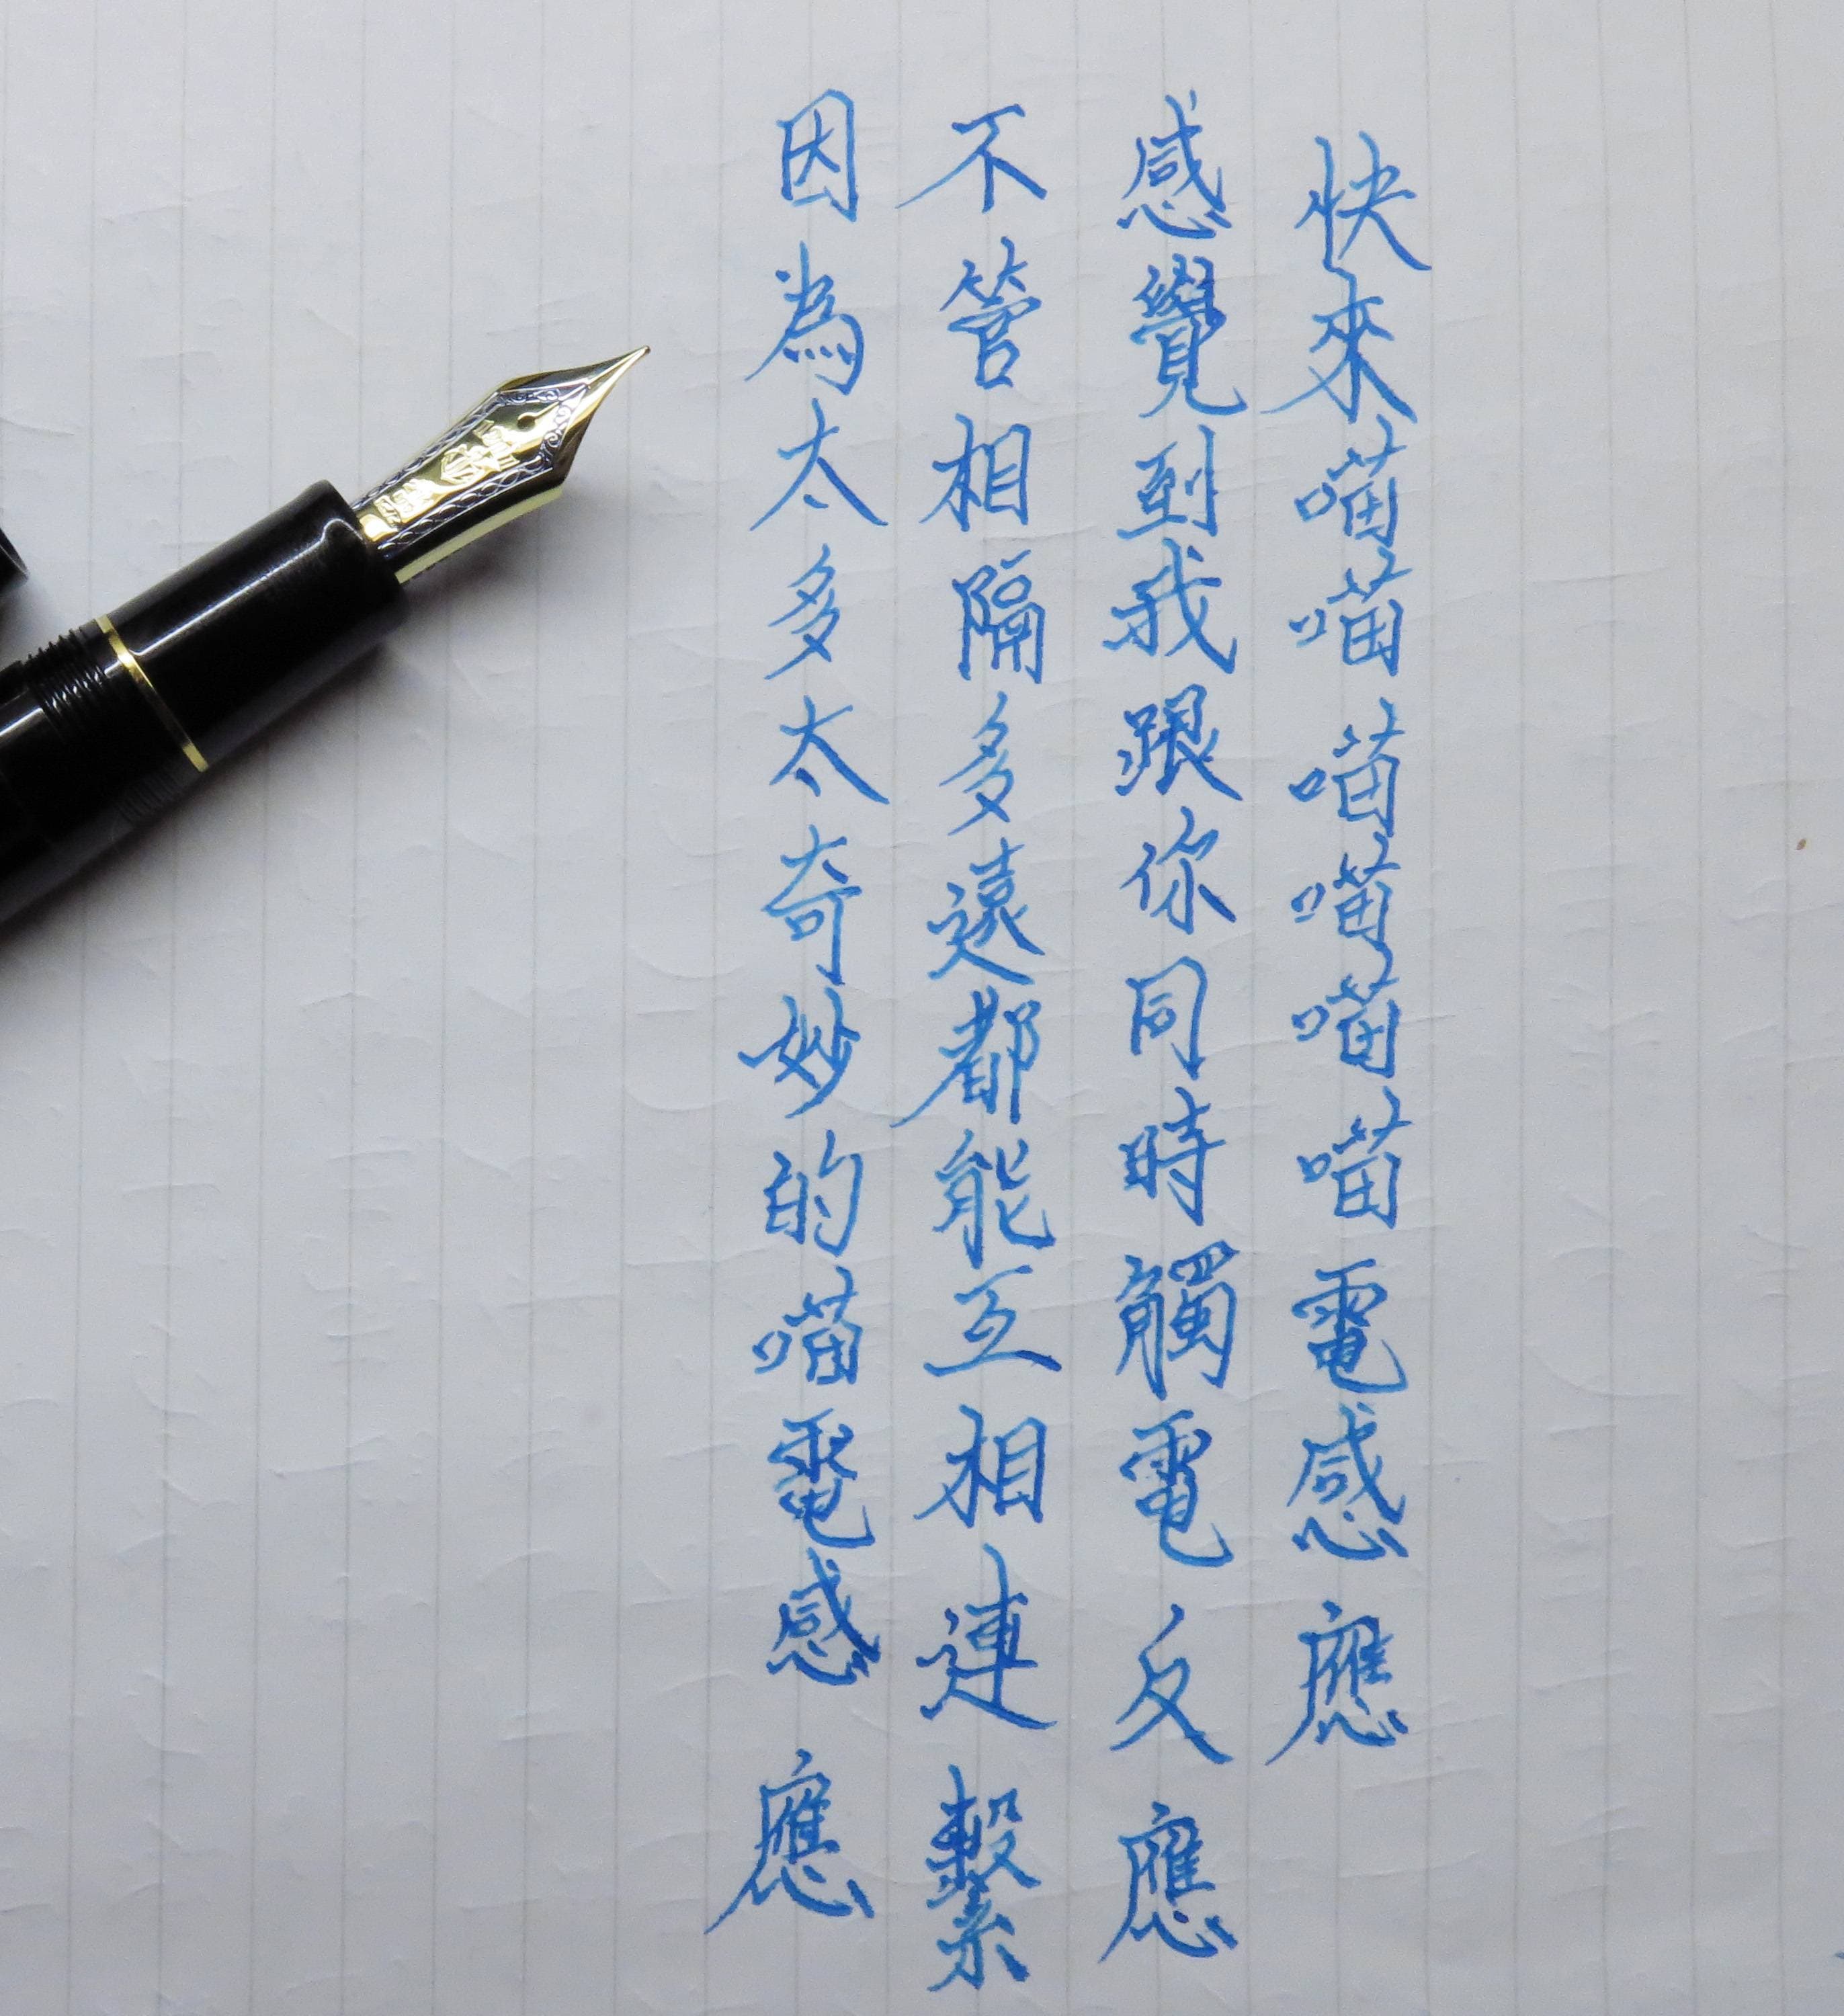 快來喵喵喵喵喵喵電感應
感覺到我跟你同時觸電反應
不管相隔多遠都能互相連繫
因為太多太奇妙的喵電感應